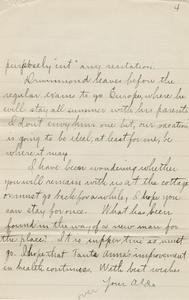 4
purposely "cut" any recitation.
Drummond leaves before the
regular exams to go Europe, where he
will stay all summer with his parents
I don't envy him one bit, our vacation
is going to be ideal, at least for me, be
where it may.
I have been wondering whether
you will remain with us at the cottage
or must go back for awhile, I hope you
can stay for once. What has been
found in the way of a new man for
the place? It is supper time so must
go. I hope that Santa Anna's improvement
in health continues. With best wishes
Your Alda
over